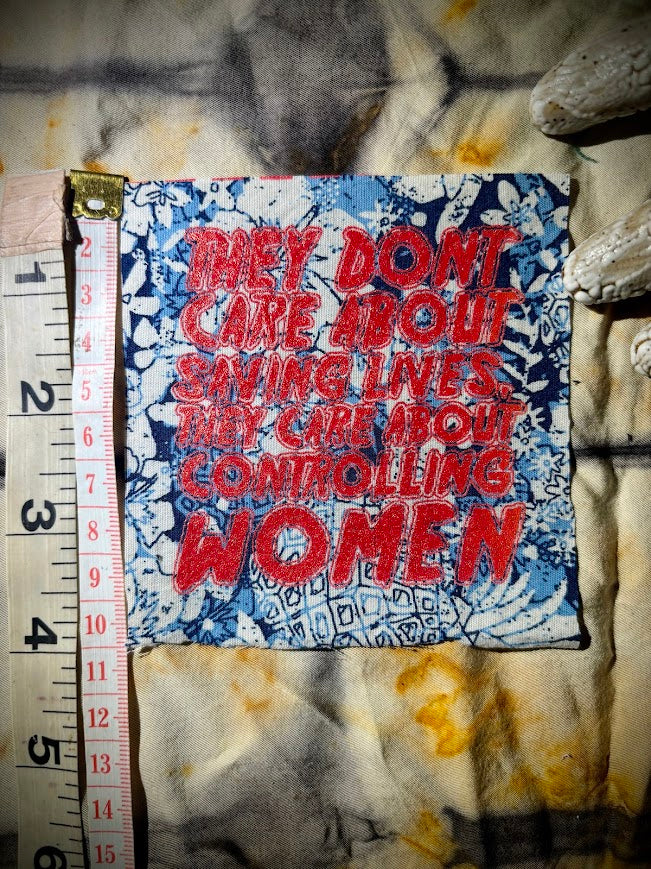 THEY DONT
CARE ABOUT
SAVING LIVES,
THEY CARE ABOUT
CONTROLLING
WOMEN
1
2
3
4
5
6
2
3
4
5
6
7
8
9
10
11
12
13
14
15